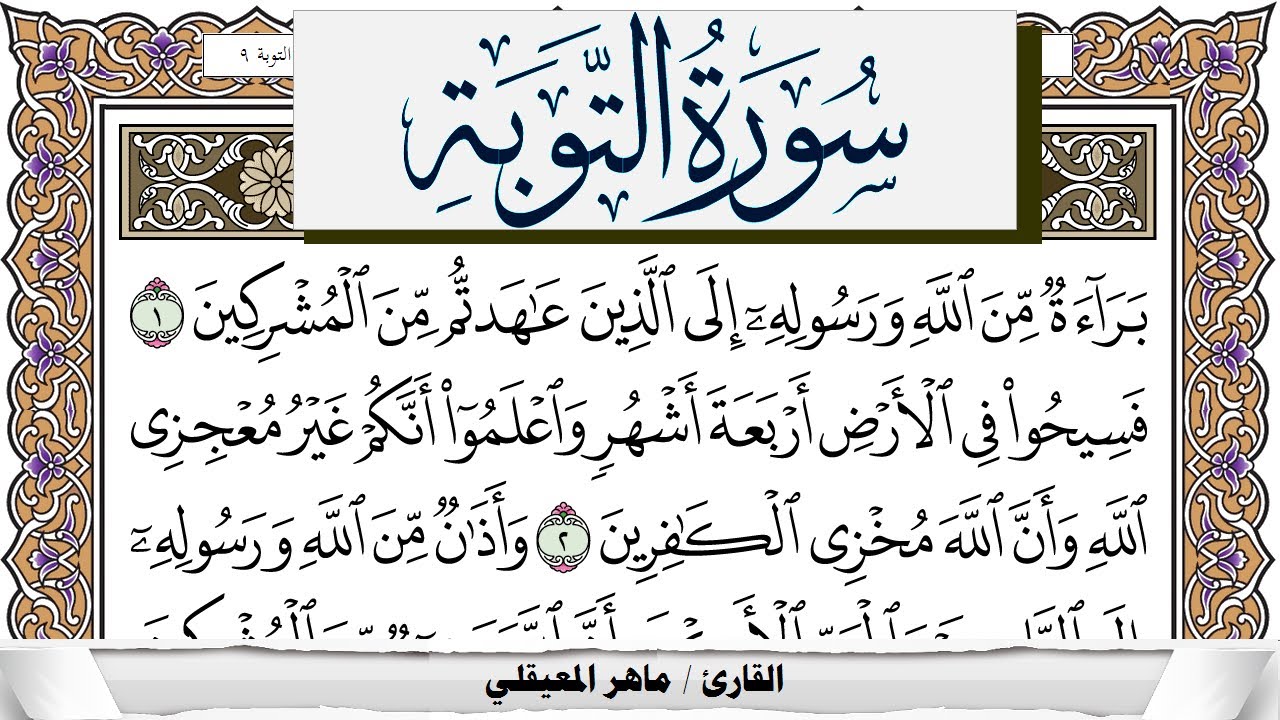 التوبة ٩
سُورَةُ التَّوبَةِ
بَرَآءَةٌ مِّنَ ٱللَّهِ وَرَسُولِهِۦٓ إِلَى ٱلَّذِينَ عَٰهَدتُّم مِّنَ ٱلْمُشْرِكِينَ ١
فَسِيحُوا۟ فِى ٱلْأَرْضِ أَرْبَعَةَ أَشْهُرٍ وَٱعْلَمُوٓا۟ أَنَّكُمْ غَيْرُ مُعْجِزِى
ٱللَّهِ وَأَنَّ ٱللَّهَ مُخْزِى ٱلْكَٰفِرِينَ ٢ وَأَذَٰنٌ مِّنَ ٱللَّهِ وَرَسُولِهِۦٓ
القارئ / ماهر المعيقلي